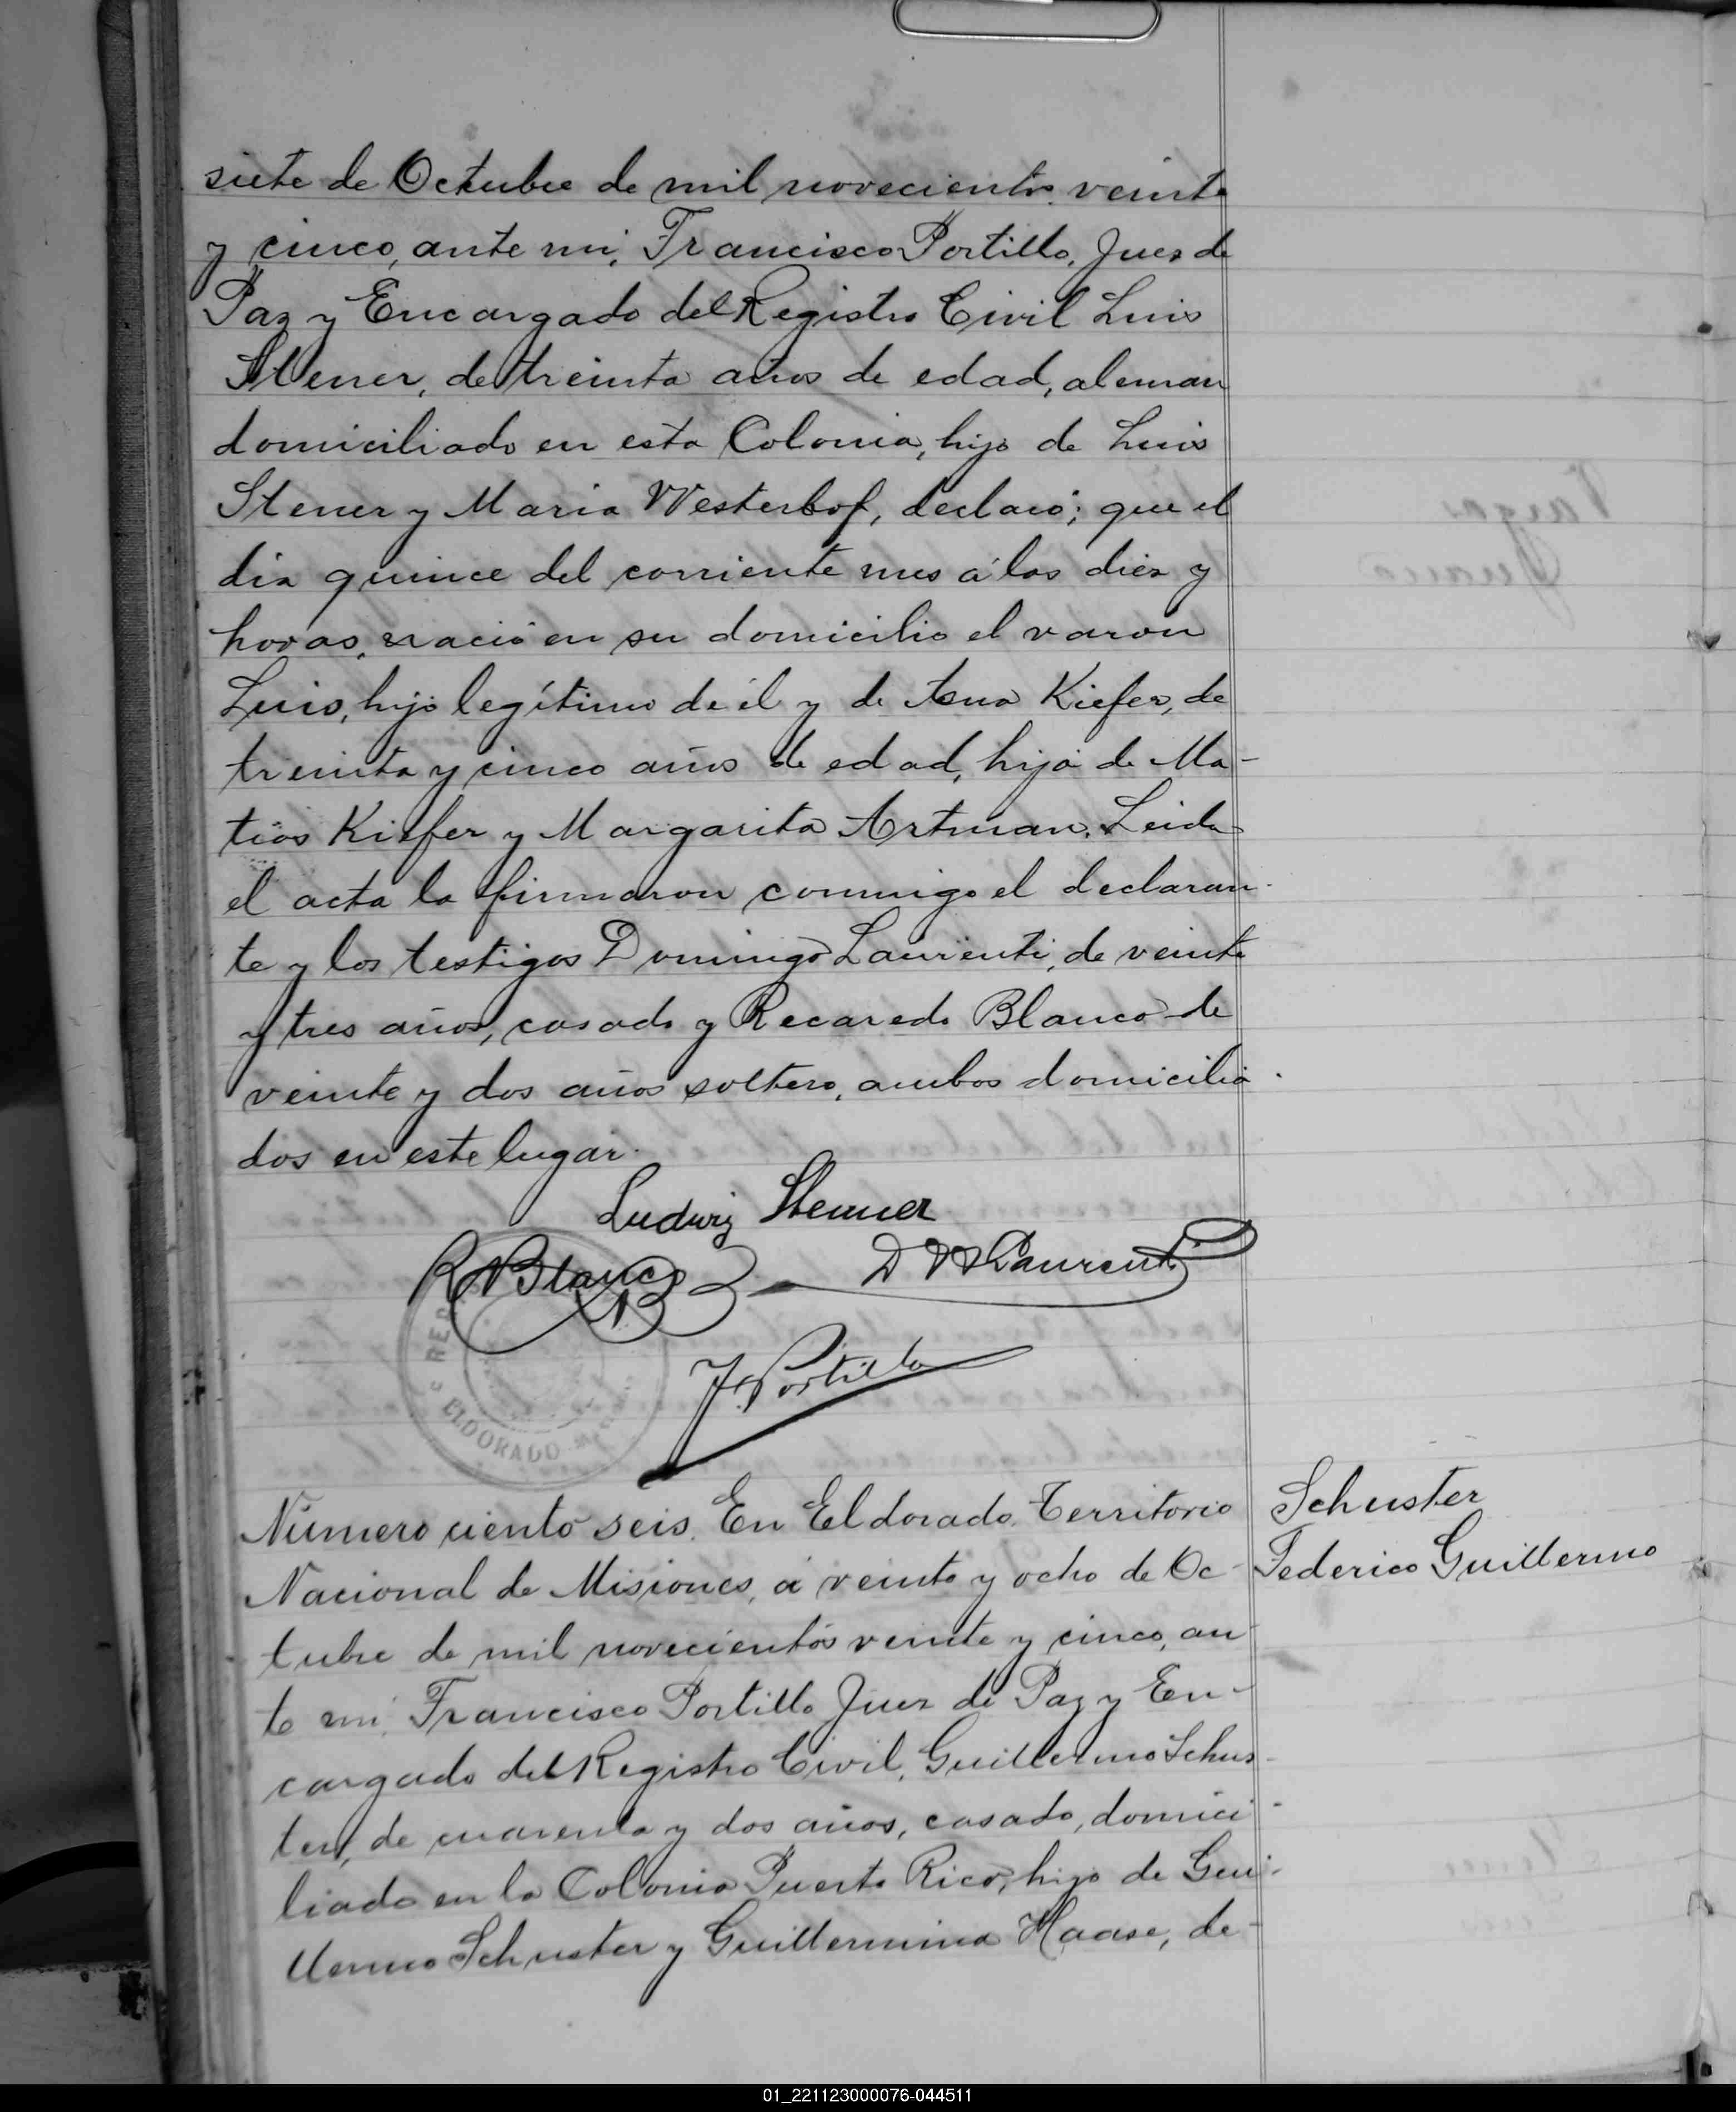 siete de Octubre de mil novecientos veinte
y cinco, ante mi, Francisco Portillo, Juez de
Paz y Encargado del Registro Civil Luis
Stener, de treinta años de edad, aleman
domiciliado en esta Colonia, hijo de Luis
Stener y Maria Westerhof, declaró; que el
dia quince del corriente mes a las diez y
horas, nació en su domicilio el varon
Luis, hijo legítimo de él y de Ana Kiefer, de
treinta y cinco años de edad, hija de Ma-
tias Kiefer y Margarita Artman. Leida
el acta la firmaron conmigo el declaran-
te y los testigos Domingo Laurenti, de veinte
y tres años, casado y Recaredo Blanco de
veinte y dos años soltero, ambos domicilia-
dos en este lugar.
Ludwig Stenner
R Blanco
D Laurenti
F. Portillo
ELDORADO
Número ciento seis. En Eldorado Territorio
Nacional de Misiones, á veinte y ocho de Oc-
tubre de mil novecientos veinte y cinco, an-
te mi, Francisco Portillo Juez de Paz y En-
cargado del Registro Civil, Guillermo Schus-
ter, de cuarenta y dos años, casado, domici-
liado en la Colonia Puerto Rico, hijo de Gui-
llermo Schuster y Guillermina Haase, de-
Schuster
Federico Guillermo
01_221123000076-044511